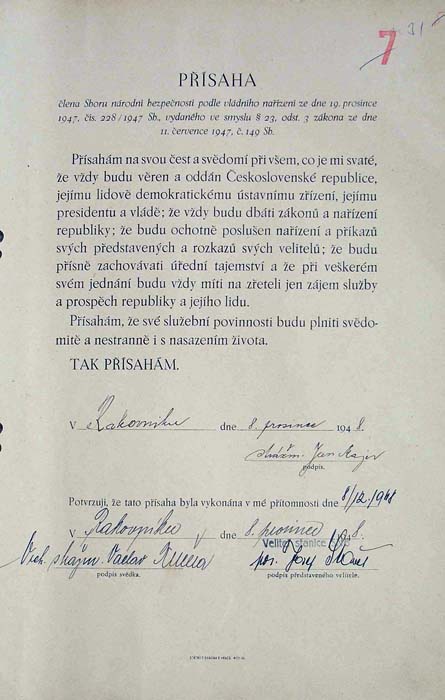 7
31
PŘÍSAHA
člena Sboru národní bezpečnosti podle vládního nařízení ze dne 19. prosince
1947, čís. 228/1947 Sb., vydaného ve smyslu § 23, odst. 3 zákona ze dne
11. července 1947, č. 149 Sb.
Přísahám na svou čest a svědomí při všem, co je mi svaté,
že vždy budu věren a oddán Československé republice,
jejímu lidově demokratickému ústavnímu zřízení, jejímu
presidentu a vládě; že vždy budu dbáti zákonů a nařízení
republiky; že budu ochotně poslušen nařízení a příkazů
svých představených a rozkazů svých velitelů; že budu
přísně zachovávati úřední tajemství a že při veškerém
svém jednání budu vždy míti na zřeteli jen zájem služby
a prospěch republiky a jejího lidu.
Přísahám, že své služební povinnosti budu plniti svědo-
mitě a nestranně i s nasazením života.
TAK PŘÍSAHÁM.
V Rakovníku dne 8. prosince 1948.
strážm. Jan
podpis.
Potvrzuji, že tato přísaha byla vykonána v mé přítomnosti dne 8/12.1948
V Rakovníku dne 8. prosince 1948.
Velitel stanice
Vrch. strážm. Václav por. Josef
podpis svědka. podpis představeného velitele.